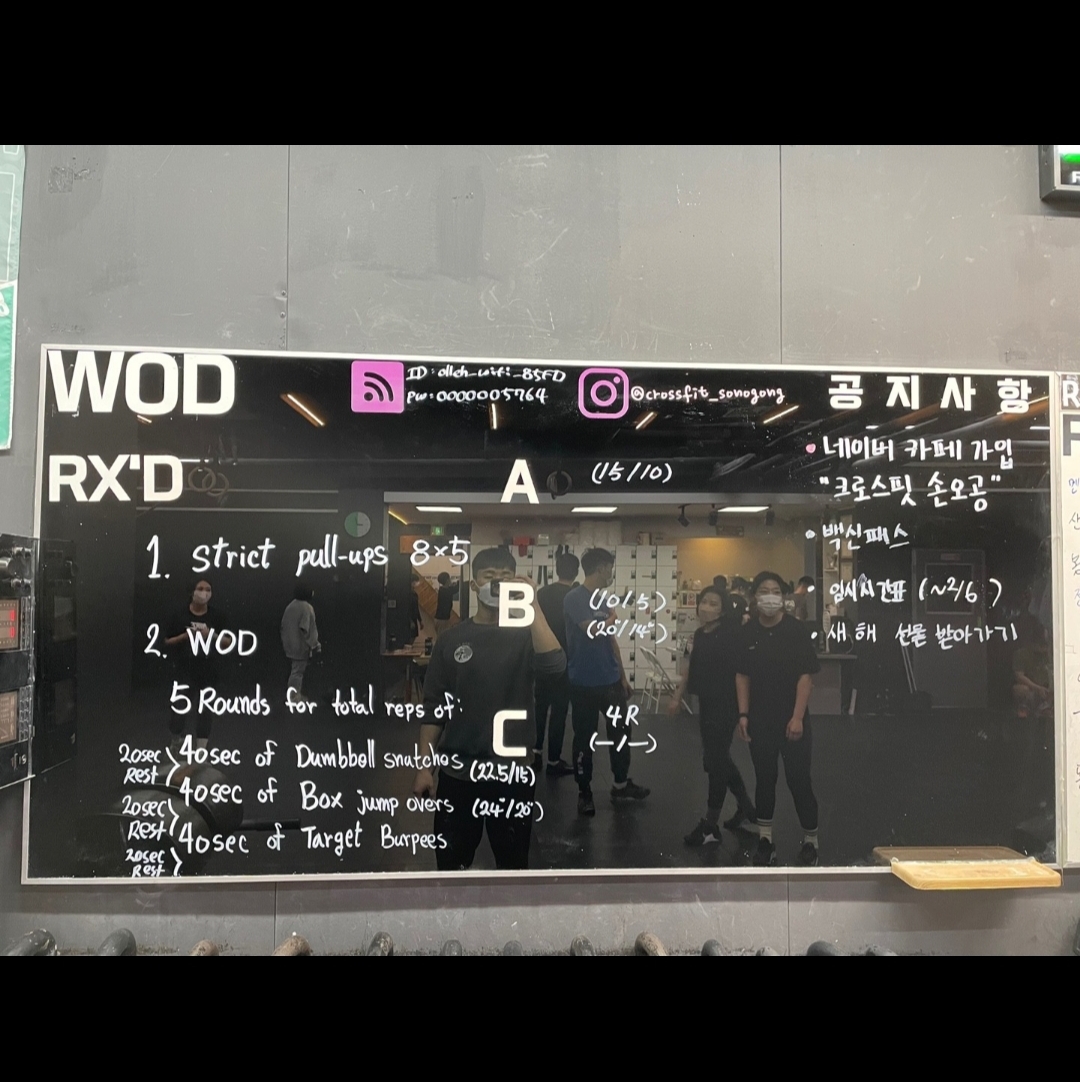 WOD
ID: olleh_wifi_85FD
PW: 0000005764
@crossfit_sonogong
공지사항
RX'D
1. Strict pull-ups 8x5
2. WOD
5 Rounds for total reps of:
20sec Rest
40sec of Dumbbell snatches (22.5/15)
20sec Rest
40sec of Box jump overs (24"/20")
20sec Rest
40sec of Target Burpees
A (15/10)
B (10/5)
(20"/14")
C 4R
(—/—)
• 네이버 카페 가입
"크로스핏 손오공"
• 백신패스
• 임시시간표 (~2/6)
• 새해 선물 받아가기